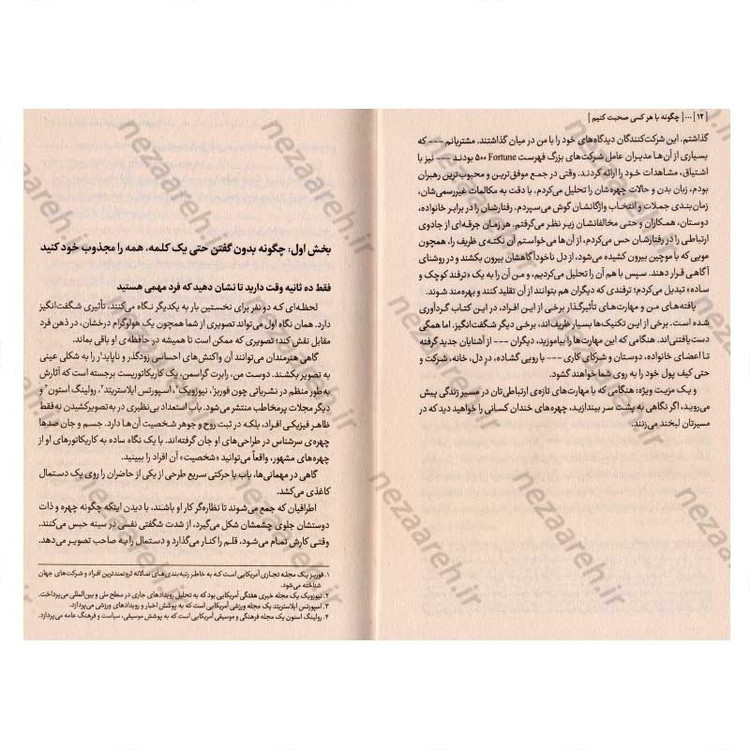 | ۱۲ | ... | چگونه با هر کسی صحبت کنیم |
گذاشتم. این شرکت‌کنندگان دیدگاه‌های خود را با من در میان گذاشتند. مشتریانم --- که
بسیاری از آن‌ها مدیران عامل شرکت‌های بزرگ فهرست Fortune ۵۰۰ بودند --- نیز با
اشتیاق، مشاهدات خود را ارائه کردند. وقتی در جمع موفق‌ترین و محبوب‌ترین رهبران
بودم، زبان بدن و حالات چهره‌شان را تحلیل می‌کردم. با دقت به مکالمات غیررسمی‌شان،
زمان‌بندی جملات و انتخاب واژگانشان گوش می‌سپردم. رفتارشان را در برابر خانواده،
دوستان، همکاران و حتی مخالفانشان زیر نظر می‌گرفتم. هر زمان جرقه‌ای از جادوی
ارتباطی را در رفتارشان حس می‌کردم، از آن‌ها می‌خواستم آن نکته‌ی ظریف را، همچون
مویی که با موچین بیرون کشیده می‌شود، از دل ناخودآگاهشان بیرون بکشند و در روشنای
آگاهی قرار دهند. سپس با هم آن را تحلیل می‌کردیم، و من آن را به یک «ترفند کوچک و
ساده» تبدیل می‌کردم؛ ترفندی که دیگران هم بتوانند از آن تقلید کنند و بهره‌مند شوند.
یافته‌های من و مهارت‌های تأثیرگذار برخی از این افراد، در این کتاب گردآوری
شده است. برخی از این تکنیک‌ها بسیار ظریف‌اند، برخی دیگر شگفت‌انگیز. اما همگی
دست‌یافتنی‌اند. هنگامی که این مهارت‌ها را بیاموزید، دیگران --- از آشنایان جدید گرفته
تا اعضای خانواده، دوستان و شرکای کاری --- با رویی گشاده، درِ دل، خانه، شرکت و
حتی کیف پول خود را به روی شما خواهند گشود.
و یک مزیت ویژه: هنگامی که با مهارت‌های تازه‌ی ارتباطی‌تان در مسیر زندگی پیش
می‌روید، اگر نگاهی به پشت سر بیندازید، چهره‌های خندان کسانی را خواهید دید که در
مسیرتان لبخند می‌زنند.
بخش اول: چگونه بدون گفتن حتی یک کلمه، همه را مجذوب خود کنید
فقط ده ثانیه وقت دارید تا نشان دهید که فرد مهمی هستید
لحظه‌ای که دو نفر برای نخستین بار به یکدیگر نگاه می‌کنند، تأثیری شگفت‌انگیز
دارد. همان نگاه اول می‌تواند تصویری از شما همچون یک هولوگرام درخشان، در ذهن فرد
مقابل نقش کند؛ تصویری که ممکن است تا همیشه در حافظه‌ی او باقی بماند.
گاهی هنرمندان می‌توانند آن واکنش‌های احساسی زودگذر و ناپایدار را به شکلی عینی
به تصویر بکشند. دوست من، رابرت گراسمن، یک کاریکاتوریست برجسته است که آثارش
به‌طور منظم در نشریاتی چون فوربز۱، نیوزویک۲، اسپورتس ایلاستریتد۳، رولینگ استون۴ و
دیگر مجلات پرمخاطب منتشر می‌شود. باب استعداد بی‌نظیری در به تصویرکشیدن نه فقط
ظاهر فیزیکی افراد، بلکه در ثبت روح و جوهر شخصیت آن‌ها دارد. جسم و جان صدها
چهره‌ی سرشناس در طراحی‌های او جان گرفته‌اند. با یک نگاه ساده به کاریکاتورهای او از
چهره‌های مشهور، واقعاً می‌توانید «شخصیت» آن افراد را ببینید.
گاهی در مهمانی‌ها، باب با حرکتی سریع طرحی از یکی از حاضران را روی یک دستمال
کاغذی می‌کشد.
اطرافیان که جمع می‌شوند تا نظاره‌گر کار او باشند، با دیدن اینکه چگونه چهره و ذات
دوستشان جلوی چشمشان شکل می‌گیرد، از شدت شگفتی نفس در سینه حبس می‌کنند.
وقتی کارش تمام می‌شود، قلم را کنار می‌گذارد و دستمال را به صاحب تصویر می‌دهد.
۱. فوربز یک مجله تجاری آمریکایی است که به خاطر رتبه‌بندی‌های سالانه ثروتمندترین افراد و شرکت‌های جهان
شناخته می‌شود.
۲. نیوزویک یک مجله خبری هفتگی آمریکایی بود که به تحلیل رویدادهای جاری در سطح ملی و بین‌المللی می‌پرداخت.
۳. اسپورتس ایلاستریتد یک مجله ورزشی آمریکایی است که به پوشش اخبار و رویدادهای ورزشی می‌پردازد.
۴. رولینگ استون یک مجله فرهنگی و موسیقی آمریکایی است که به پوشش موسیقی، سیاست و فرهنگ عامه می‌پردازد.
nezaareh.ir